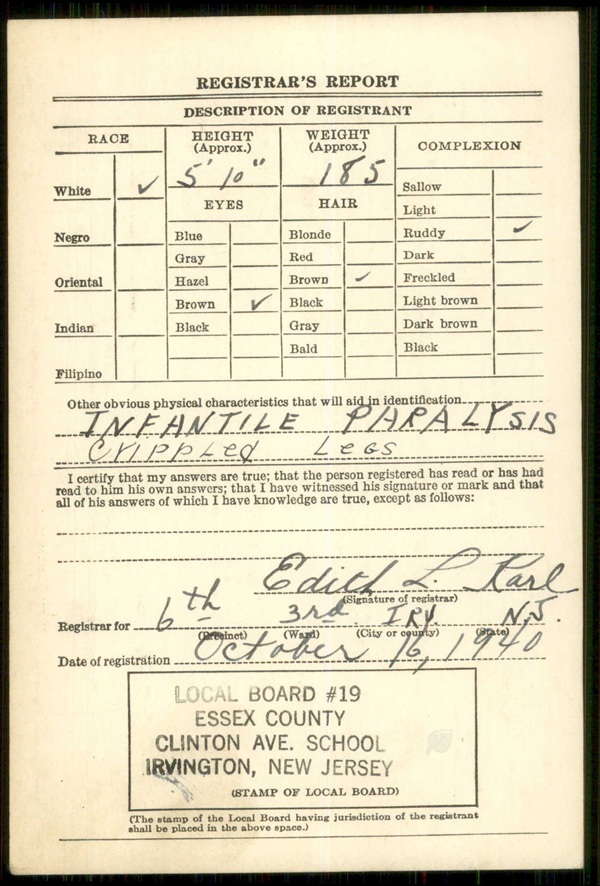 REGISTRAR'S REPORT
DESCRIPTION OF REGISTRANT
RACE
HEIGHT (Approx.)
WEIGHT (Approx.)
COMPLEXION
5' 10"
185
White ✓
EYES
HAIR
Sallow
Light
Negro
Blue
Blonde
Ruddy ✓
Gray
Red
Dark
Oriental
Hazel
Brown ✓
Freckled
Brown ✓
Black
Light brown
Indian
Black
Gray
Dark brown
Bald
Black
Filipino
Other obvious physical characteristics that will aid in identification
INFANTILE PARALYSIS
Crippled Legs
I certify that my answers are true; that the person registered has read or has had
read to him his own answers; that I have witnessed his signature or mark and that
all of his answers of which I have knowledge are true, except as follows:
Edith L. Karl
(Signature of registrar)
Registrar for 6th 3rd. IRV. N.J.
(Precinct) (Ward) (City or county) (State)
Date of registration October 16, 1940
LOCAL BOARD #19
ESSEX COUNTY
CLINTON AVE. SCHOOL
IRVINGTON, NEW JERSEY
(STAMP OF LOCAL BOARD)
(The stamp of the Local Board having jurisdiction of the registrant
shall be placed in the above space.)